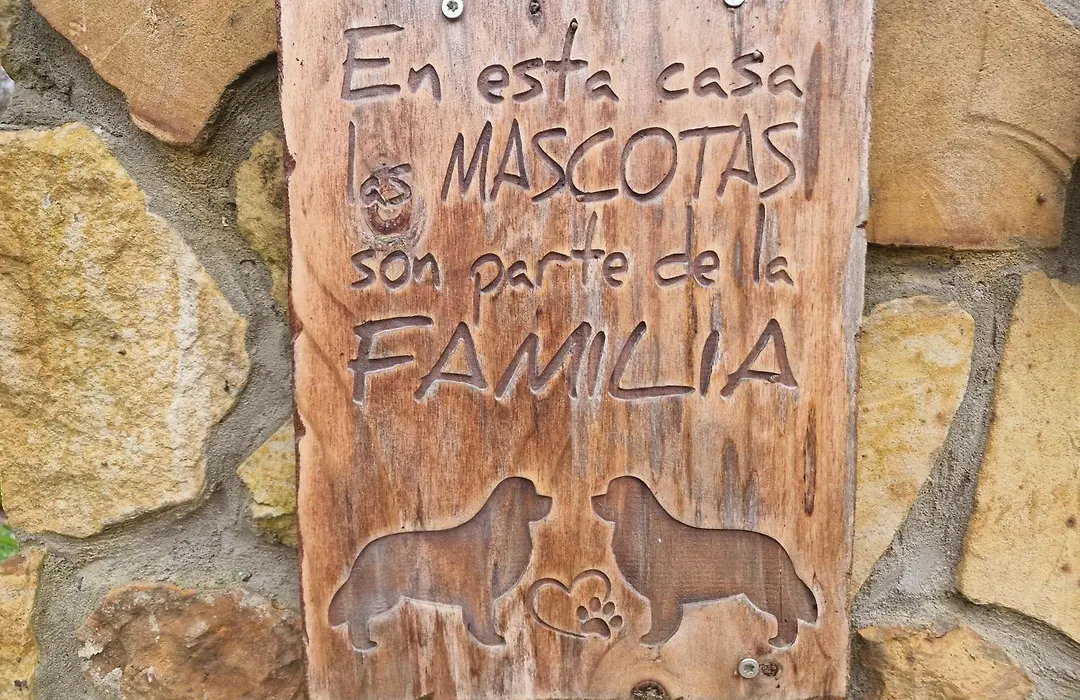 En esta casa
las MASCOTAS
son parte de la
FAMILIA